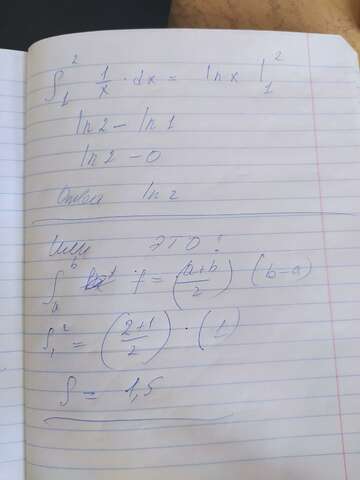 ∫₁² 1/x · dx = ln x |₁²
ln 2 - ln 1
ln 2 - 0
Ответ ln 2
Или ЭТО!
∫ₐᵇ f = ((a+b)/2) (b-a)
∫₁² = ((2+1)/2) · (1)
∫ = 1,5